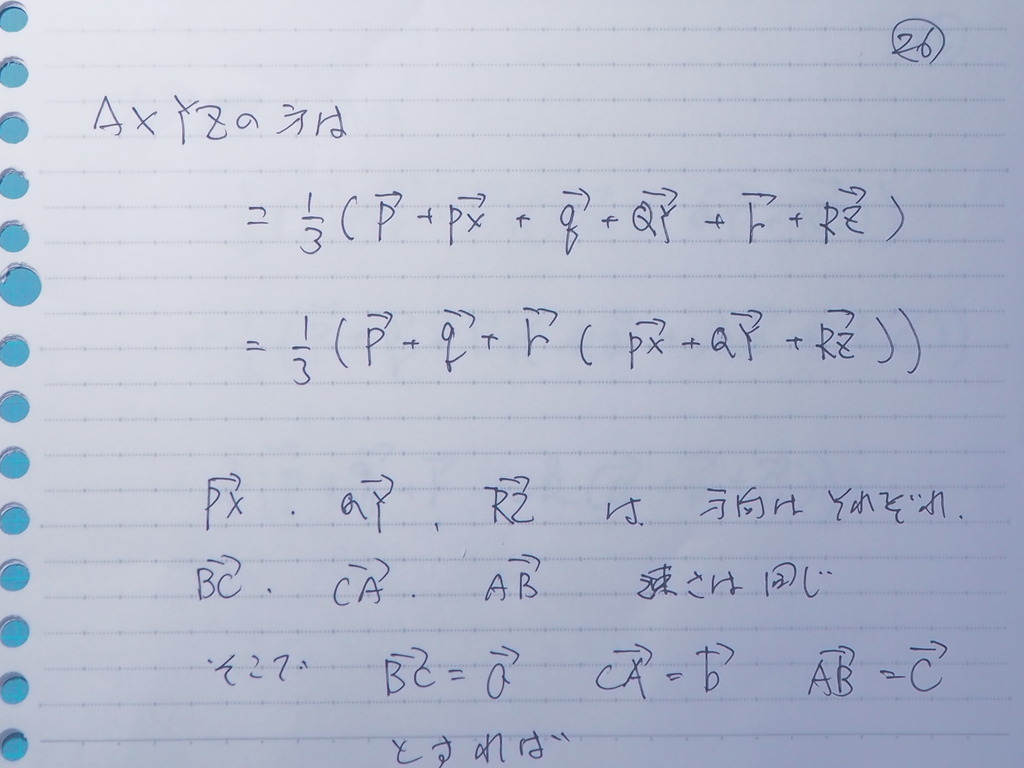 ㉖
△XYZの方は
= 1/3 ( p⃗ + PX⃗ + q⃗ + QY⃗ + r⃗ + RZ⃗ )
= 1/3 ( p⃗ + q⃗ + r⃗ ( PX⃗ + QY⃗ + RZ⃗ ) )
PX⃗ . QY⃗ . RZ⃗ は 方向は それぞれ.
BC⃗ . CA⃗ . AB⃗ 速さは 同じ
そこで BC⃗ = a⃗ CA⃗ = b⃗ AB⃗ = c⃗
とすれば